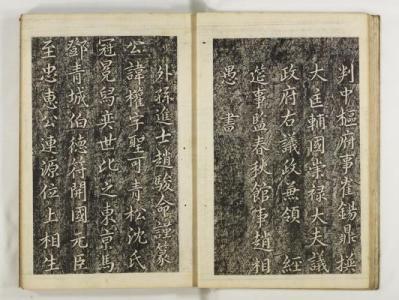 判中樞府事崔錫鼎撰
大匡輔國崇祿大夫議
政府右議政兼領 經
筵事監春秋館事趙相
愚 書
外孫進士趙駿命謹篆
公諱權字聖可青松沈氏
冠冕舄奕世比之東京馬
鄧青城伯德符開國元臣
至忠惠公連源位上相生